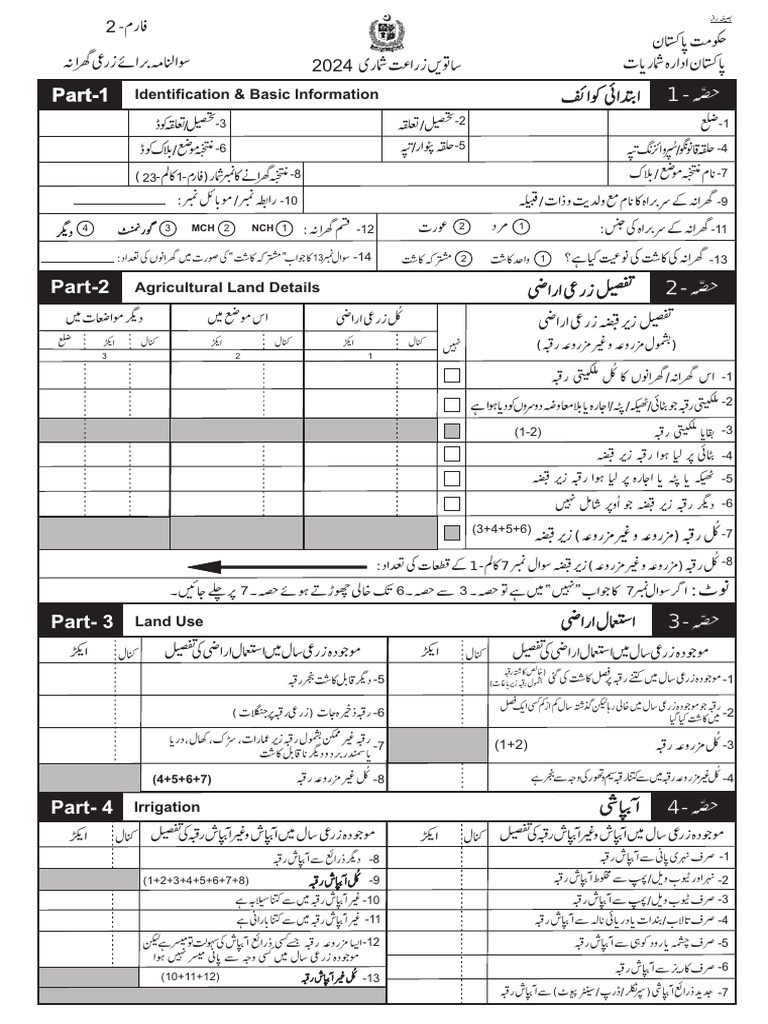 بصیغہ راز
حکومت پاکستان
پاکستان ادارہ شماریات
ساتویں زراعت شماری 2024
فارم- 2
سوالنامہ برائے زرعی گھرانہ
حصّہ -1 ابتدائی کوائف Identification & Basic Information Part-1
1- ضلع
2- تحصیل/تعلقہ
3- تحصیل/تعلقہ کوڈ
4- حلقہ قانونگو/سُپروائزنگ تپہ
5- حلقہ پٹوار/تپہ
6- منتخبہ موضع/بلاک کوڈ
7- نام منتخبہ موضع/بلاک
8- منتخبہ گھرانے کا نمبر شمار (فارم-1 کالم-23)
9- گھرانہ کے سربراہ کا نام مع ولدیت و ذات/قبیلہ
10- رابطہ نمبر/موبائل نمبر:
11- گھرانہ کے سربراہ کی جنس: 1 مرد 2 عورت
12- قسم گھرانہ: 1 NCH 2 MCH 3 گورنمنٹ 4 دیگر
13- گھرانہ کی کاشت کی نوعیت کیا ہے؟ 1 واحد کاشت 2 مشترکہ کاشت
14- سوال نمبر 13 کا جواب "مشترکہ کاشت" کی صورت میں گھرانوں کی تعداد:
حصّہ -2 تفصیل زرعی اراضی Agricultural Land Details Part-2
تفصیل زیر قبضہ زرعی اراضی
(بشمول مزروعہ و غیر مزروعہ رقبہ)
نہیں
کُل زرعی اراضی
کنال ایکڑ
1
اس موضع میں
کنال ایکڑ
2
دیگر مواضعات میں
کنال ایکڑ ضلع
3
1- اس گھرانہ/گھرانوں کا کُل ملکیتی رقبہ
2- ملکیتی رقبہ جو بٹائی/ٹھیکہ/پٹہ/اجارہ یا بلا معاوضہ دوسروں کو دیا ہوا ہے
3- بقایا ملکیتی رقبہ (1-2)
4- بٹائی پر لیا ہوا رقبہ زیر قبضہ
5- ٹھیکہ یا پٹہ یا اجارہ پر لیا ہوا رقبہ زیر قبضہ
6- دیگر رقبہ زیر قبضہ جو اُوپر شامل نہیں
7- کُل رقبہ (مزروعہ و غیر مزروعہ) زیر قبضہ (3+4+5+6)
8- کُل رقبہ (مزروعہ و غیر مزروعہ) زیر قبضہ سوال نمبر 7 کالم-1 کے قطعات کی تعداد:
نوٹ: اگر سوال نمبر 7 کا جواب "نہیں" میں ہے تو حصہ۔3 سے حصہ۔6 تک خالی چھوڑتے ہوئے حصہ۔7 پر چلے جائیں۔
حصّہ -3 استعمال اراضی Land Use Part- 3
موجودہ زرعی سال میں استعمال اراضی کی تفصیل کنال ایکڑ
موجودہ زرعی سال میں استعمال اراضی کی تفصیل کنال ایکڑ
1- موجودہ زرعی سال میں کتنے رقبہ پر فصل کاشت کی گئی (خالص کاشتہ رقبہ بشمول رقبہ زیر باغات)
2- رقبہ جو موجودہ زرعی سال میں خالی رہا لیکن گذشتہ سال کم از کم کسی ایک فصل
میں کاشت کیا گیا
3- کُل مزروعہ رقبہ (1+2)
4- کُل غیر مزروعہ رقبہ میں سے کتنا رقبہ سیم و تھور کی وجہ سے بنجر ہے
5- دیگر قابل کاشت بنجر رقبہ
6- رقبہ ذخیرہ جات (زرعی رقبہ پر جنگلات)
7- رقبہ غیر ممکن بشمول رقبہ زیر عمارات، سڑک، کھال، دریا
یا سمندر برد و دیگر نا قابل کاشت
8- کُل غیر مزروعہ رقبہ (4+5+6+7)
حصّہ -4 آبپاشی Irrigation Part- 4
موجودہ زرعی سال میں آبپاش و غیر آبپاش رقبہ کی تفصیل کنال ایکڑ
موجودہ زرعی سال میں آبپاش و غیر آبپاش رقبہ کی تفصیل کنال ایکڑ
1- صرف نہری پانی سے آبپاش رقبہ
2- نہر اور ٹیوب ویل/پمپ سے مخلوط آبپاش رقبہ
3- صرف ٹیوب ویل/پمپ سے آبپاش رقبہ
4- صرف تالاب/بندات یا دریائی نالہ سے آبپاش رقبہ
5- صرف چشمہ یا رود کوہی سے آبپاش رقبہ
6- صرف کاریز سے آبپاش رقبہ
7- جدید ذرائع آبپاشی (سپرنکلر/ڈرپ/سینٹر پیوٹ) سے آبپاش رقبہ
8- دیگر ذرائع سے آبپاش رقبہ
9- کُل آبپاش رقبہ (1+2+3+4+5+6+7+8)
10- غیر آبپاش رقبہ میں سے کتنا سیلابہ ہے
11- غیر آبپاش رقبہ میں سے کتنا بارانی ہے
12- ایسا مزروعہ رقبہ جسے کسی ذرائع آبپاشی کی سہولت تو میسر ہے لیکن
موجودہ زرعی سال میں کسی وجہ سے پانی میسر نہیں ہوا
13- کُل غیر آبپاش رقبہ (10+11+12)